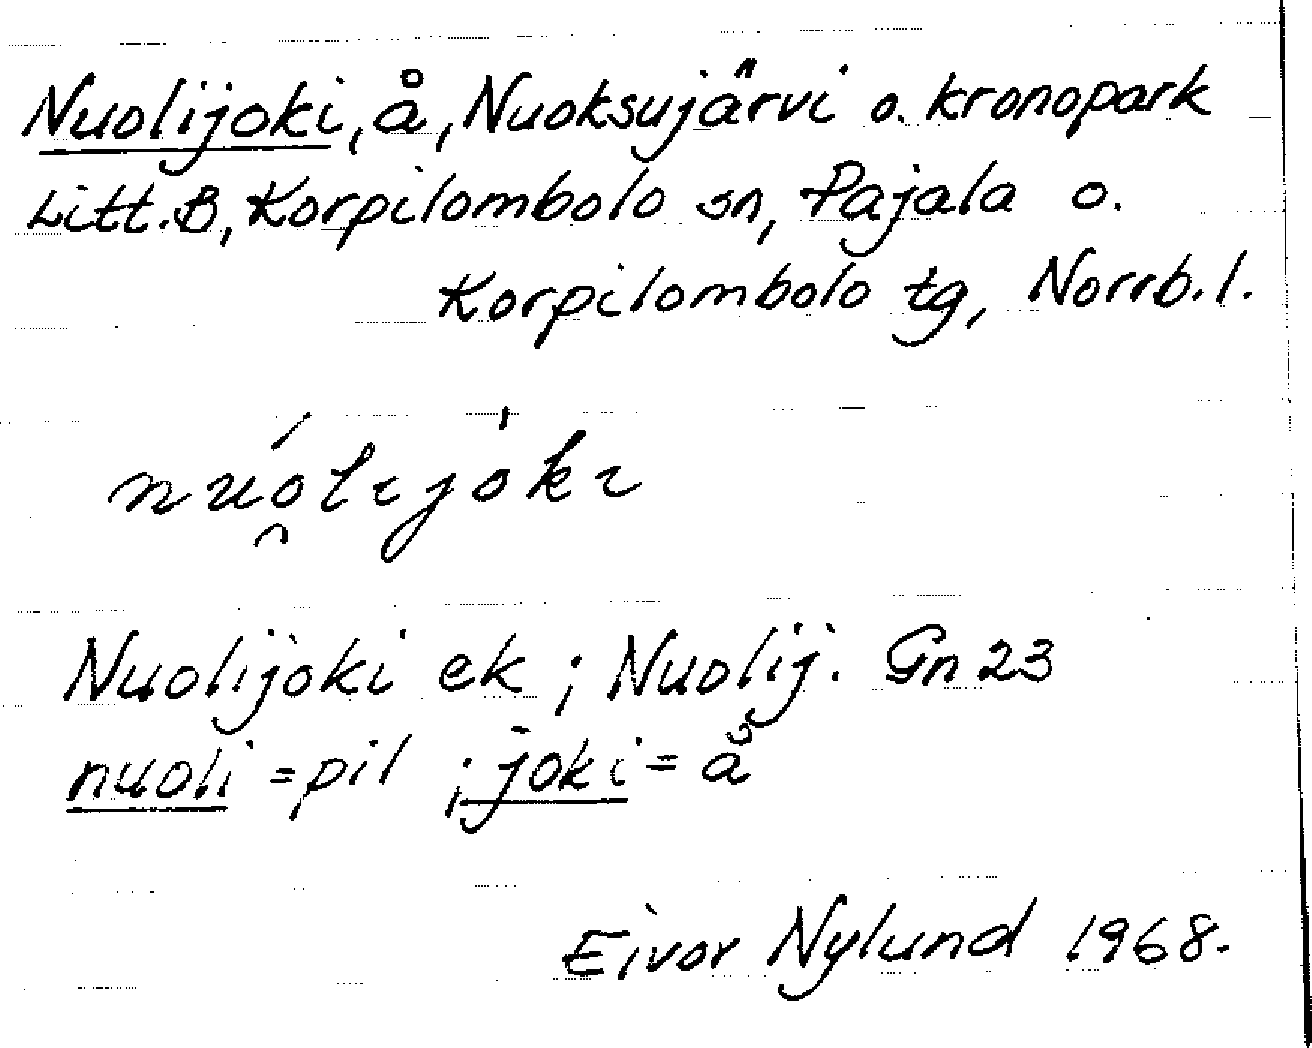 Nuolijoki, å, Nuoksujärvi o. kronopark
Litt. B, Korpilombolo sn, Pajala o.
Korpilombolo tg, Norrb. l.
nuo̯lɩjókɩ
Nuolijoki ek ; Nuolij. Gn 23
nuoli = pil ; joki = å
Eivor Nylund 1968.